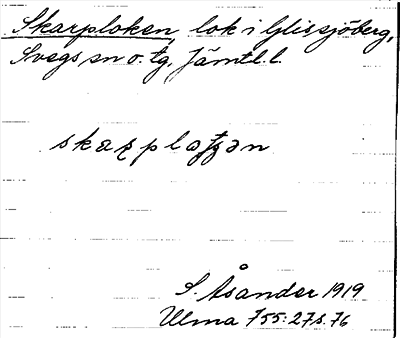 Skarploken, lok i Glissjöberg,
Svegs sn o. tg, Jämtl. l.
S. Åsander 1919
Ulma 755: 27 s. 76